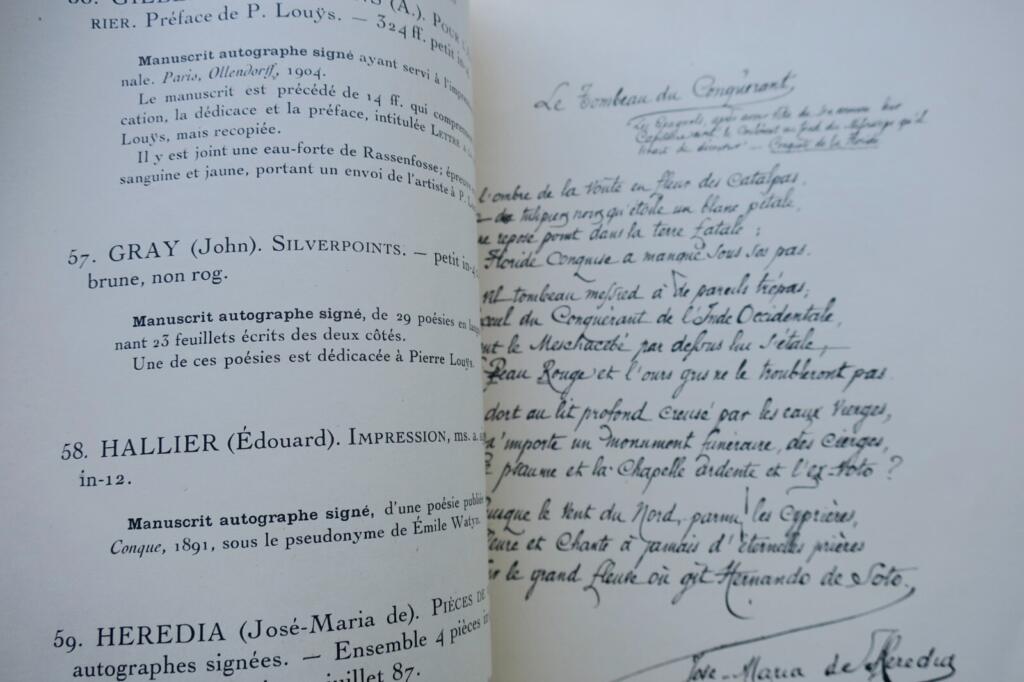 (A.). POUR L
RIER. Préface de P. Louÿs. — 324 ff. petit in-4
Manuscrit autographe signé ayant servi à l'impres
nale. Paris, Ollendorff, 1904.
Le manuscrit est précédé de 14 ff. qui compren
cation, la dédicace et la préface, intitulée LETTRE À
Louÿs, mais recopiée.
Il y est joint une eau-forte de Rassenfosse; épreuve
sanguine et jaune, portant un envoi de l'artiste à P. Lo
57. GRAY (John). SILVERPOINTS. — petit in-4
brune, non rog.
Manuscrit autographe signé, de 29 poésies en lang
nant 23 feuillets écrits des deux côtés.
Une de ces poésies est dédicacée à Pierre Louÿs.
58. HALLIER (Édouard). IMPRESSION, ms. a. s
in-12.
Manuscrit autographe signé, d'une poésie publiée
Conque, 1891, sous le pseudonyme de Émile Watyn.
59. HEREDIA (José-Maria de). PIÈCES DE
autographes signées. — Ensemble 4 pièces in
juillet 87.
Le Tombeau du Conquérant
Les Espagnols, après avoir
— Conquête de la Floride
l'ombre de la voûte en fleur des Catalpas
tulipiers noirs qu'étoile un blanc pétale,
ne repose point dans la terre fatale ;
Floride conquise a manqué sous ses pas.
tombeau messied à de pareils trépas;
ceul du Conquérant de l'Inde Occidentale,
ut le Meschacébé par dessus lui s'étale,
Peau Rouge et l'ours gris ne le troubleront pas
dort au lit profond creusé par les eaux vierges,
u'importe un monument funéraire, des cierges,
psaume et la Chapelle ardente et l'ex-voto ?
uisque le vent du Nord, parmi les cyprières,
leure et chante à jamais d'éternelles prières
ur le grand fleuve où gît Hernando de Soto.
José-Maria de Heredia